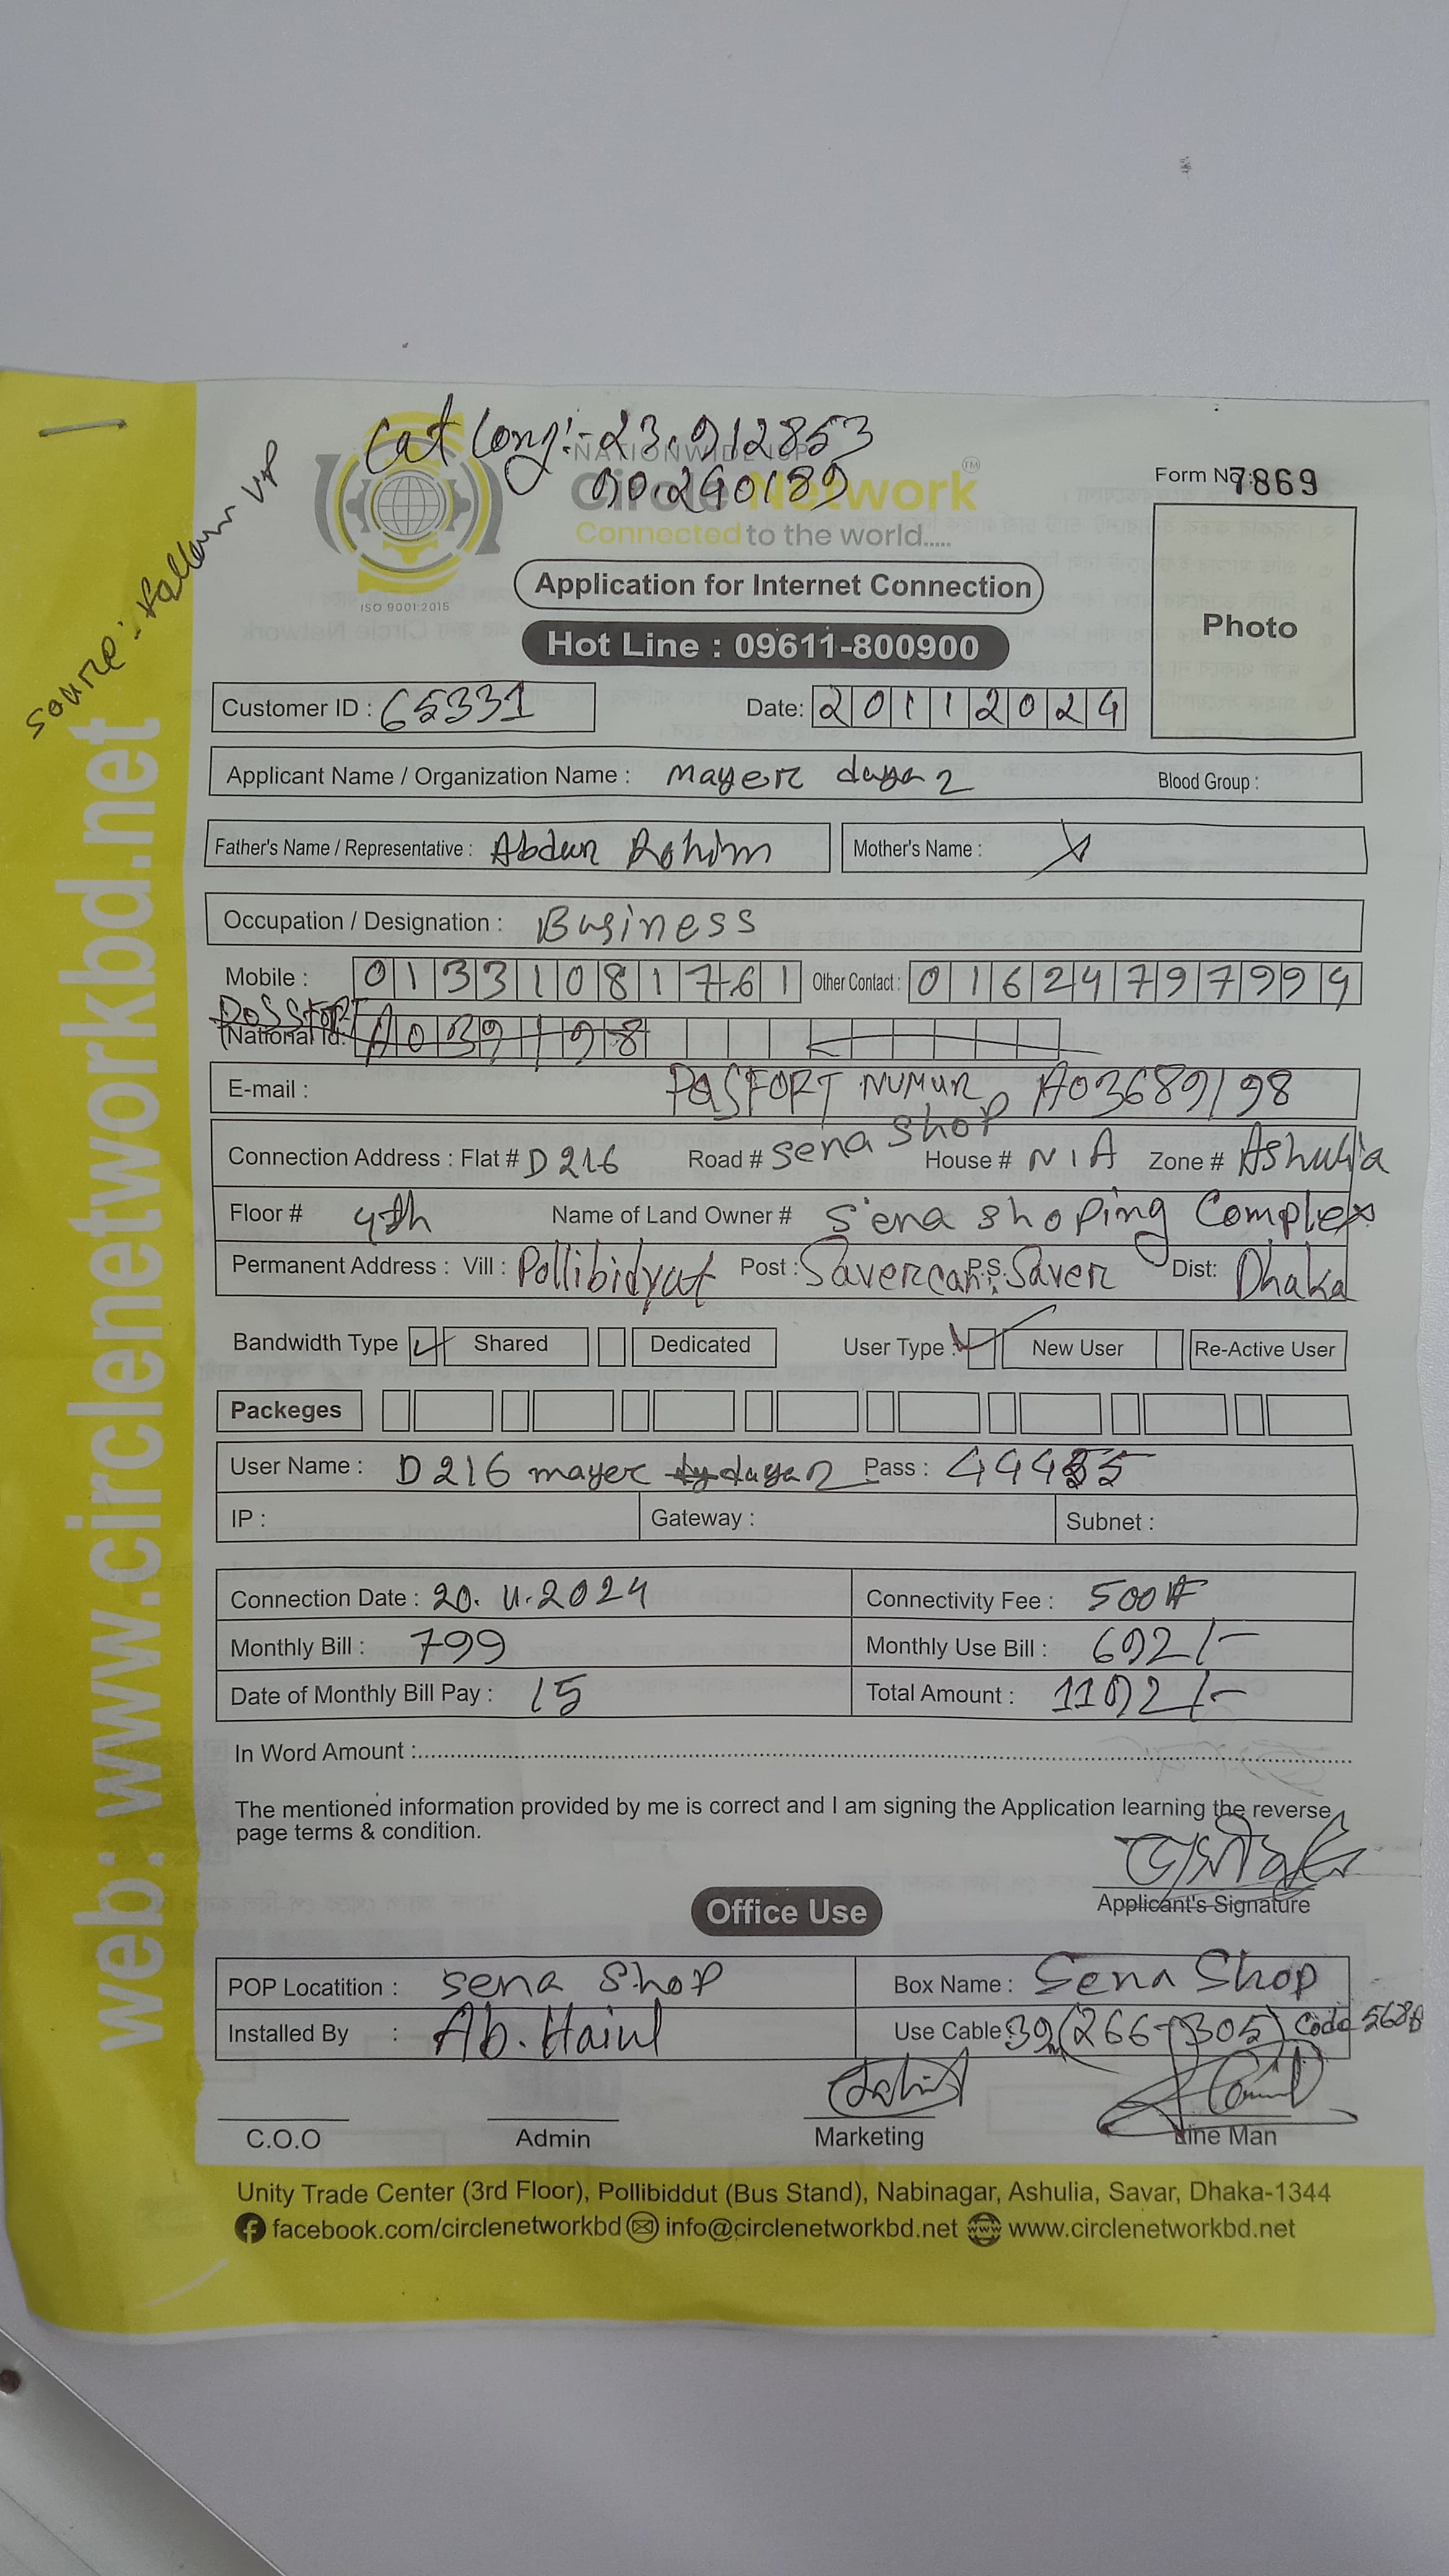 Cat Long:- 23.912853
90.290189
NATIONWIDE ISP
Circle Network™
Connected to the world.....
ISO 9001:2015
source:- follow up
Form No: 7869
Photo
Application for Internet Connection
Hot Line : 09611-800900
Customer ID : 65331 Date: 20112024
Applicant Name / Organization Name : Mayer daya 2 Blood Group :
Father's Name / Representative : Abdur Rohim Mother's Name : X
Occupation / Designation : Business
Mobile : 01331081761 Other Contact : 01624797994
National Id: A039198
E-mail : PASFORT NUMUR A03689198
Connection Address : Flat # D216 Road # Sena Shop House # N/A Zone # Ashulia
Floor # 4th Name of Land Owner # Sena Shoping Complex
Permanent Address : Vill : Pollibidyut Post : Savercan P.S: Saver Dist: Dhaka
Bandwidth Type Shared Dedicated User Type : New User Re-Active User
Packeges
User Name : D216 mayer daya 2 Pass :
IP : Gateway : Subnet :
Connection Date : 20.11.2024 Connectivity Fee : 500
Monthly Bill : 799 Monthly Use Bill : 692/-
Date of Monthly Bill Pay : 15 Total Amount : 1192/-
In Word Amount :
The mentioned information provided by me is correct and I am signing the Application learning the reverse
page terms & condition.
Applicant's Signature
Office Use
POP Locatition : Sena Shop Box Name : Sena Shop
Installed By : Ab. Use Cable : 39m (266-305) Code
C.O.O Admin Marketing Line Man
Unity Trade Center (3rd Floor), Pollibiddut (Bus Stand), Nabinagar, Ashulia, Savar, Dhaka-1344
facebook.com/circlenetworkbd info@circlenetworkbd.net www.circlenetworkbd.net
web: www.circlenetworkbd.net